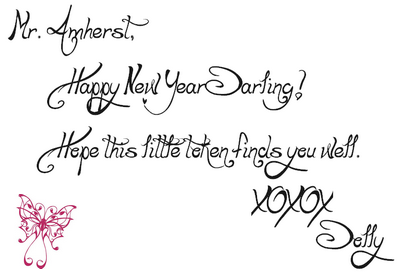 Mr. Amherst,
Happy New Year Darling!
Hope this little token finds you well.
XOXOX
Delly